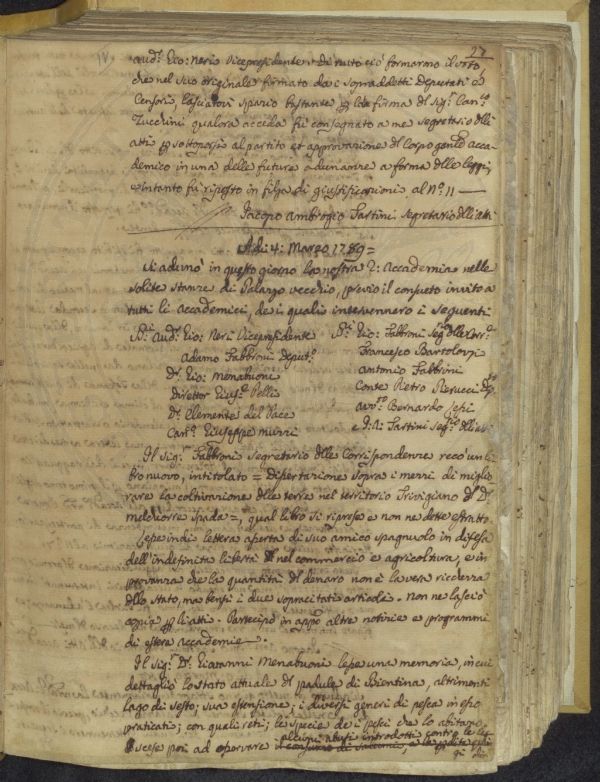 27
aud.re Gio: Neri Vicepresidente. Di tutto ciò formarono il voto
che nel suo originale firmato da i sopraddetti Deputati e
Censori, lasciatovi spazio bastante p la firma del Sig.r Can.co
Zucchini qualora acceda fu consegnato a me segretario dlli
atti p sottoporsi al partito et approvazione dl Corpo gnle acca-
demico in una delle future adunanze a forma dlle leggi,
e intanto fu riposto in filza di giustificazioni al N.o 11 —
Jacopo Ambrogio Tartini Segretario dlli atti
Adì: 4: Marzo 1789 =
Si adunò in questo giorno la nostra R: Accademia nelle
solite stanze di Palazzo vecchio, previo il consueto invito a
tutti li accademici, de i quali intervennero i seguenti
SS.ri Aud.re Gio: Neri Vicepresidente
Adamo Fabbroni Deput.o
D.r Gio: Menabuoni
Direttor Gius.e Pelli
D.r Clemente del Pace
Can.co Giuseppe Muzzi
SS.ri Gio: Fabbroni Seg.rio dlle Corr.ze
Francesco Bartolozzi
Antonio Fabbrini
Conte Pietro Perucci Dep.to
Avv.to Bernardo Lessi
e J: A: Tartini Seg.rio dlli atti
Il Sig.r Fabbroni Segretario dlle Corrispondenze recò un li-
bro nuovo, intitolato = Dissertazione sopra i mezzi di miglio-
rare la coltivazione dlle terre nel territorio Trivigiano dl D.r
Melchiorre Spada =, qual libro si riprese e non ne dette estratto
Lesse indi lettera aperta di suo amico spagnuolo in difesa
dell'indefinita libertà nel commercio e agricoltura, e in
provanza che la quantità dl denaro non è la vera ricchezza
dllo stato, ma bensì i due sopracitati articoli. Non ne lasciò
copia p li atti. Partecipò in app.o altre notizie e programmi
di estere accademie —.
Il Sig.r D.r Giovanni Menabuoni lesse una memoria, in cui
dettagliò lo stato attuale dl padule di Bientina, altrimenti
lago di Sesto; sua estensione; i diversi generi di pesca in esso
praticati; con quali reti; le specie de i pesci che lo abitano
scese poi ad osservare alcuni abusi introdotti contro le leg-
gi